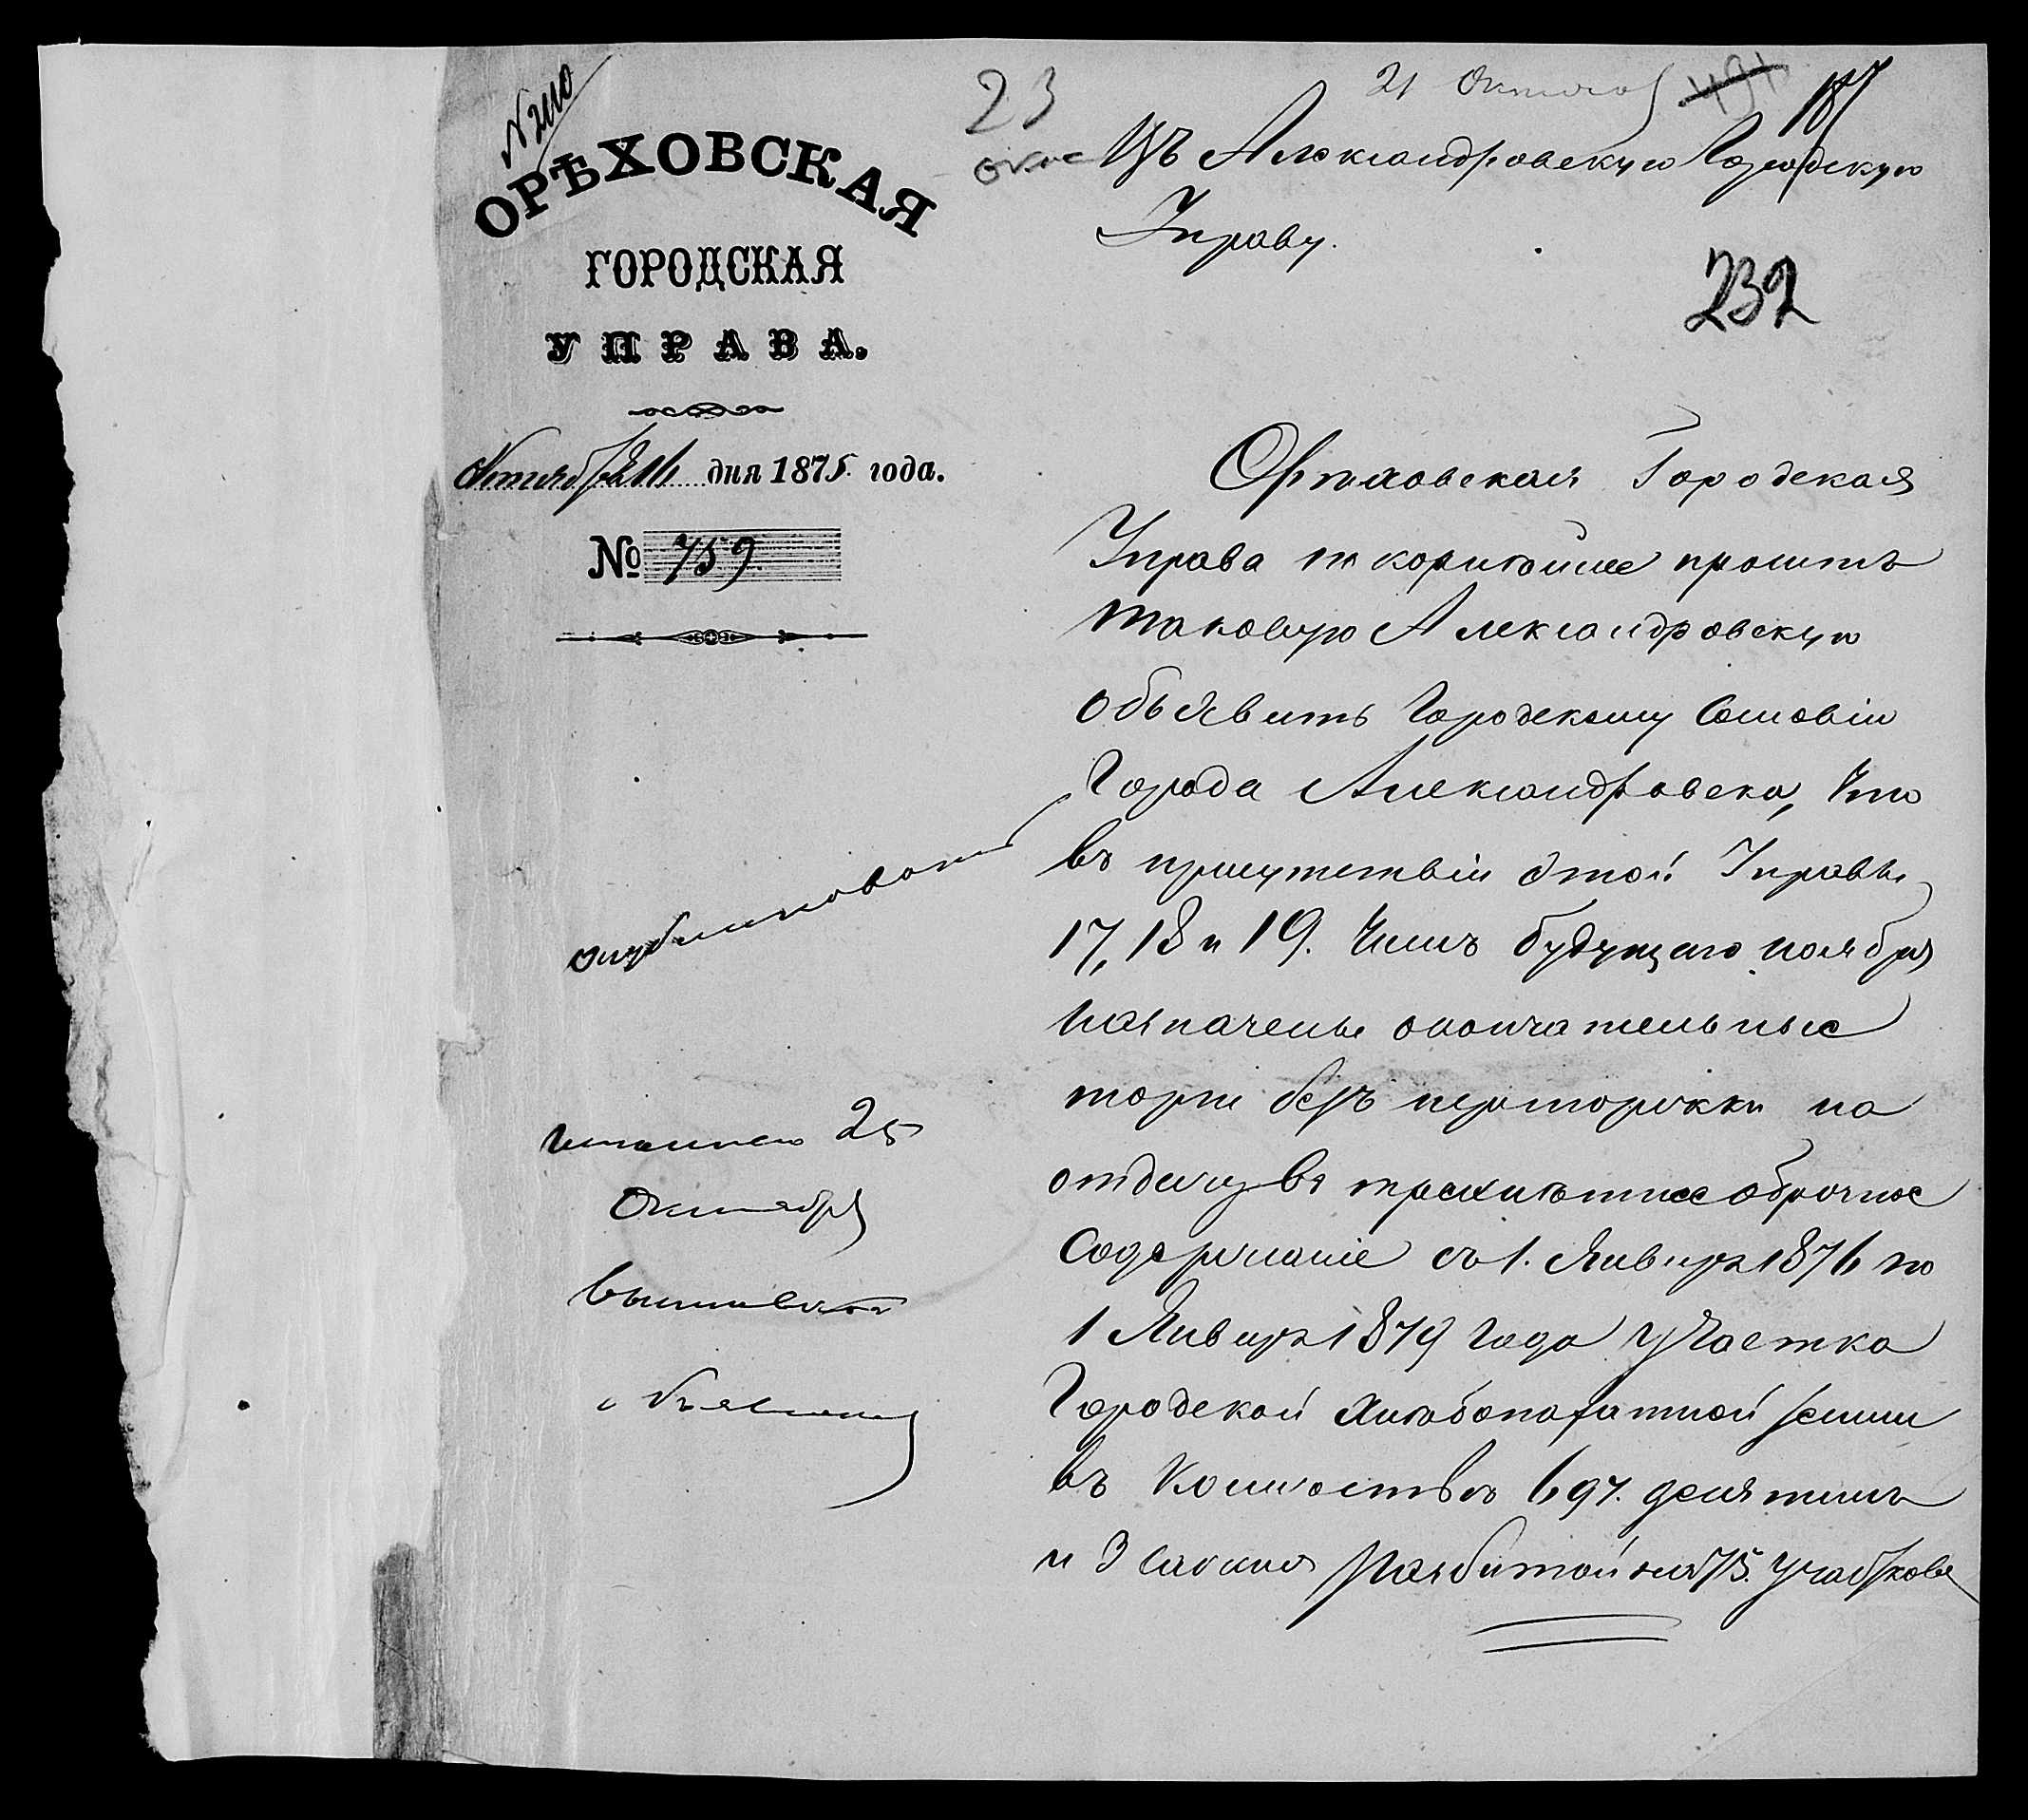 N 2110
ОРѢХОВСКАЯ
ГОРОДСКАЯ
УПРАВА.
Октября 16 дня 1875 года.
№ 759.
23
окт
21 Октября
187
Въ Александровскую Городскую
Управу.
232
Орѣховская Городская
Управа покорнѣйше проситъ
таковую Александровскую
объявить Городскому Сословію
Города Александровска, что
въ присутствіи этой Управы
17, 18 и 19. Числъ будущаго ноября
назначены окончательные
торги безъ переторжки на
отдачу въ трехлѣтнее оброчное
Содержаніе съ 1. Января 1876 по
1 Января 1879 года участка
Городской хлѣбопахатной земли
въ Количествѣ 697. десятинъ
и 3 сажня разбитой на 75. участковъ
опубликовать
25
Октября
объявлен